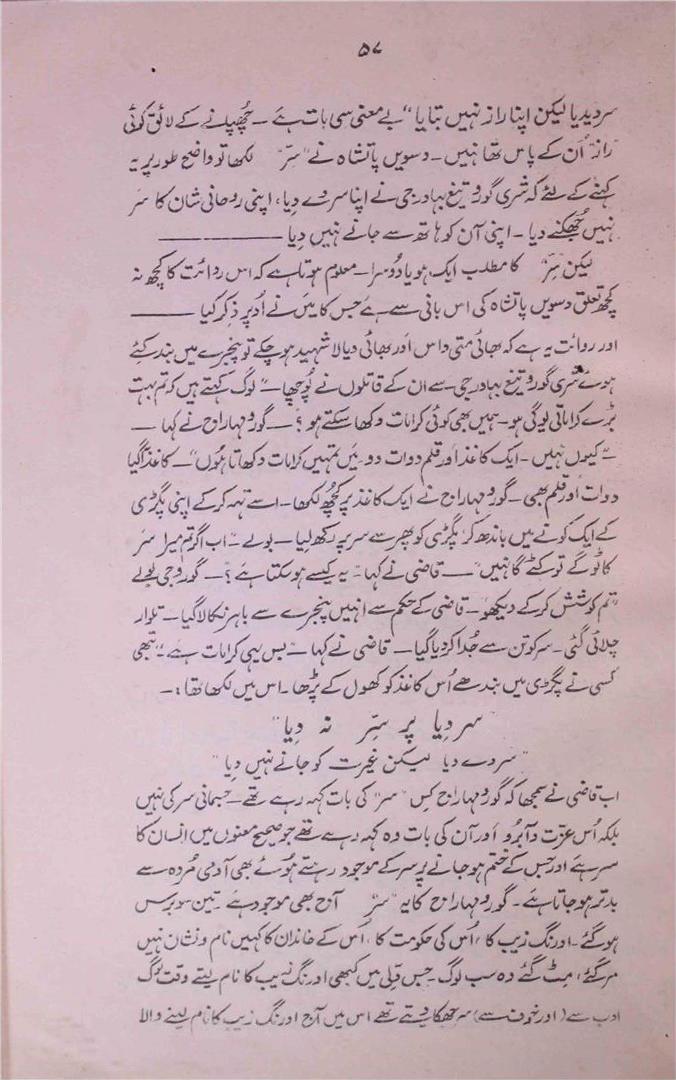 ۵۷
سر دیدیا لیکن اپنا راز نہیں بتایا“ بے معنی سی بات ہے ۔ چھپانے کے لائق کوئی
راز اُن کے پاس تھا نہیں ۔ دسویں پاتشاہ نے ”سِرّ“ لکھا تو واضح طور پر یہ
کہنے کے لئے کہ شری گورو تیغ بہادر جی نے اپنا سر دے دِیا، اپنی روحانی شان کا سر
نہیں جُھکنے دیا ۔ اپنی آن کو ہاتھ سے جانے نہیں دِیا ———
لیکن ”سِرّ“ کا مطلب ایک ہو یا دُوسرا ۔ معلوم ہوتا ہے کہ اس روائت کا کچھ نہ
کچھ تعلق دسویں پاتشاہ کی اس بانی سے ہے جس کا میں نے اُوپر ذکر کیا ———
اور روائت یہ ہے کہ بھائی متی داس اور بھائی دیالا شہید ہو چکے تو پنجرے میں بند کئے
ہوئے شری گورو تیغ بہادر جی سے ان کے قاتلوں نے پُوچھا ۔ ”لوگ کہتے ہیں کہ تم بہت
بڑے کراماتی یوگی ہو ۔ ہمیں بھی کوئی کرامات دکھا سکتے ہو؟“ — گورو مہاراج نے کہا —
”کیوں نہیں ۔ ایک کاغذ اور قلم دوات دو میں تمہیں کرامات دکھاتا ہُوں“ — کاغذ آ گیا
دوات اور قلم بھی ۔ گورو مہاراج نے ایک کاغذ پر کچھ لکھا ۔ اسے تہہ کر کے اپنی پگڑی
کے ایک کونے میں باندھ کر پگڑی کو پھر سے سر پہ رکھ لیا ۔ بولے ”اب اگر تم میرا سر
کاٹو گے تو کٹے گا نہیں“ — قاضی نے کہا ۔ ”یہ کیسے ہو سکتا ہے؟“ — گورو جی بولے
”تم کوشش کر کے دیکھو“ ۔ قاضی کے حکم سے انہیں پنجرے سے باہر نکالا گیا ۔ تلوار
چلائی گئی ۔ سر کو تن سے جُدا کر دیا گیا — قاضی نے کہا ”بس یہی کرامات ہے“ تبھی
کسی نے پگڑی میں بندھے اُس کاغذ کو کھول کے پڑھا ۔ اس میں لکھا تھا :۔
”سر دِیا پر سِرّ نہ دِیا“
”سر دے دیا لیکن غیرت کو جانے نہیں دیا“
اب قاضی نے سمجھا کہ گورو مہاراج کِس ”سر“ کی بات کہہ رہے تھے ۔ جسمانی سر کی نہیں
بلکہ اُس عزّت و آبرو اور آن کی بات وہ کہہ رہے تھے جو صحیح معنوں میں انسان کا
سر ہے اور جس کے ختم ہو جانے پر سر کے موجود رہتے ہُوئے بھی آدمی مُردہ سے
بدتر ہو جاتا ہے ۔ گورو مہاراج کا یہ ”سِرّ“ آج بھی موجود ہے ۔ تین سو برس
ہو گئے ۔ اورنگ زیب کا، اُس کی حکومت کا، اُس کے خاندان کا کہیں نام و نشان نہیں
مر گئے، مِٹ گئے وہ سب لوگ ۔ جس دِلّی میں کبھی اورنگ زیب کا نام لیتے وقت لوگ
ادب سے (اور خوف سے) سر جھکا دیتے تھے اس میں آج اورنگ زیب کا نام لینے والا